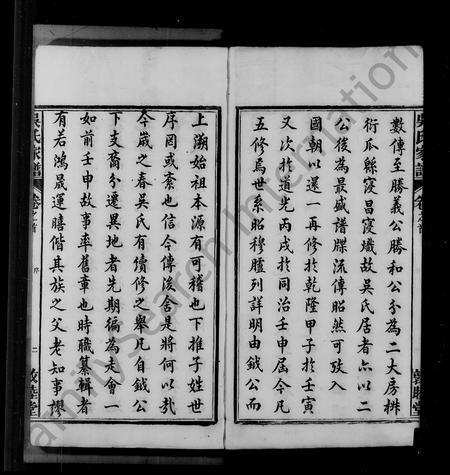 數傳至勝義公勝和公分為二大房椒
衍瓜緜寖昌寖熾故吳氏居者亦以二
公後為最盛譜牒流傳昭然可攷入
國朝以還一再修於乾隆甲子於壬寅
又次於道光丙戌於同治壬申屆今凡
五修焉世系昭穆臚列詳明由鉞公而
上溯始祖本源有可稽也下推子姓世
序罔或紊也信今傳後舍是將何以哉
今歲之春吳氏有續修之舉凡自鉞公
下支裔分遷異地者先期徧為是會一
如前壬申故事率舊章也時職纂輯者
有若鴻晟運臈偕其族之父老知事
吳氏家譜
卷之首
序
二
敦睦堂
吳氏家譜
卷之首
敦睦堂
amilySearch International